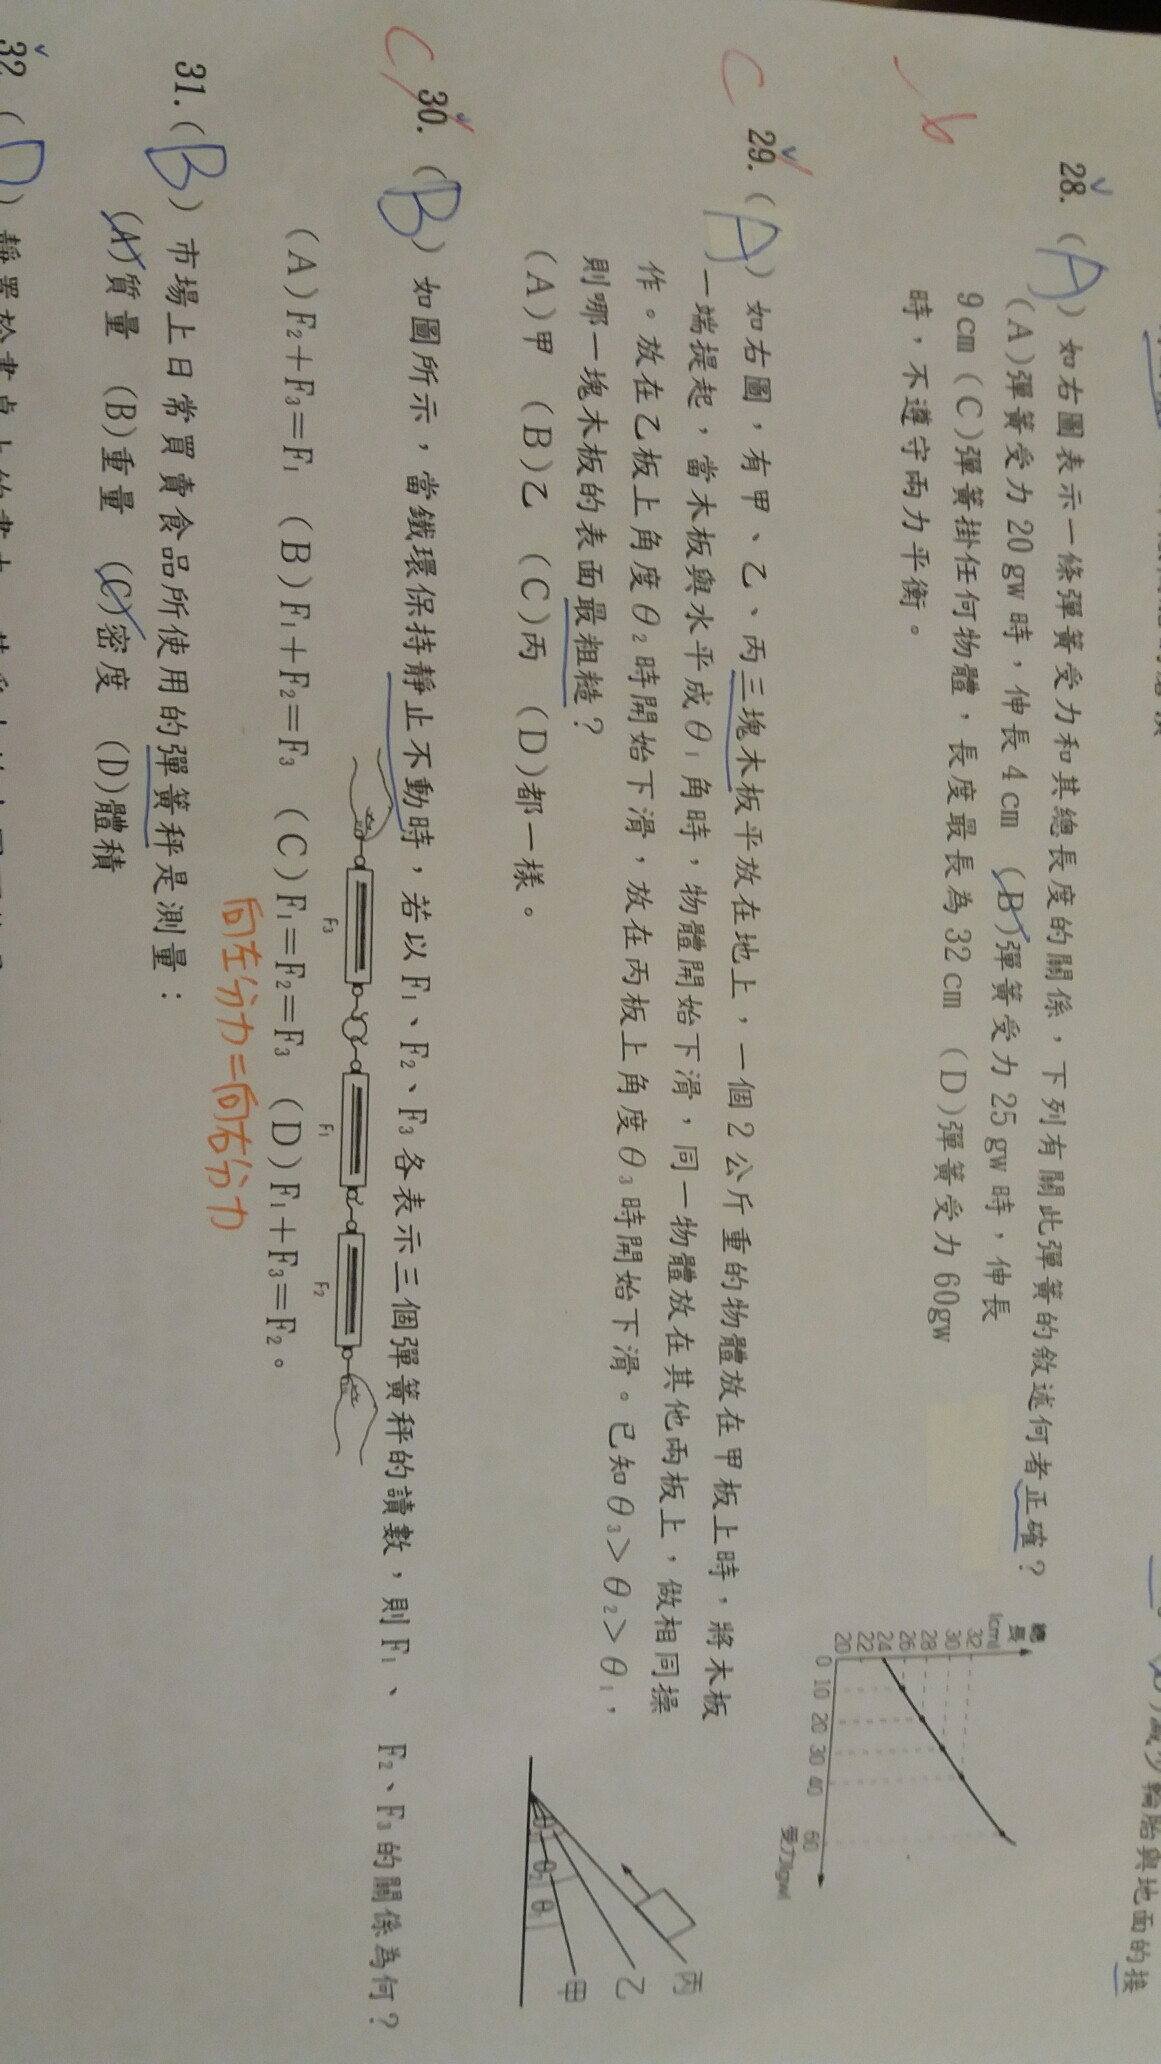 減少輪胎與地面的接
28. (A) 如右圖表示一條彈簧受力和其總長度的關係，下列有關此彈簧的敘述何者正確？
(A)彈簧受力 20 gw 時，伸長 4 cm (B)彈簧受力 25 gw 時，伸長
9 cm (C)彈簧掛任何物體，長度最長為 32 cm (D)彈簧受力 60gw
時，不遵守兩力平衡。
總長
(cm)
32
30
28
26
24
22
20
0 10 20 30 40 60
受力(gw)
C
29. (A) 如右圖，有甲、乙、丙三塊木板平放在地上，一個 2 公斤重的物體放在甲板上時，將木板
一端提起，當木板與水平成 θ1 角時，物體開始下滑，同一物體放在其他兩板上，做相同操
作。放在乙板上角度 θ2 時開始下滑，放在丙板上角度 θ3 時開始下滑。已知 θ3＞θ2＞θ1，
則哪一塊木板的表面最粗糙？
(A)甲 (B)乙 (C)丙 (D)都一樣。
丙
乙
甲
θ3 θ2 θ1
C
30. (B) 如圖所示，當鐵環保持靜止不動時，若以 F1、F2、F3 各表示三個彈簧秤的讀數，則 F1、 F2、F3 的關係為何？
F3 F1 F2
(A)F2＋F3＝F1 (B)F1＋F2＝F3 (C)F1＝F2＝F3 (D)F1＋F3＝F2。
向左分力＝向右分力
31. (B) 市場上日常買賣食品所使用的彈簧秤是測量：
(A)質量 (B)重量 (C)密度 (D)體積
32. (D) 靜置於書桌上的書本